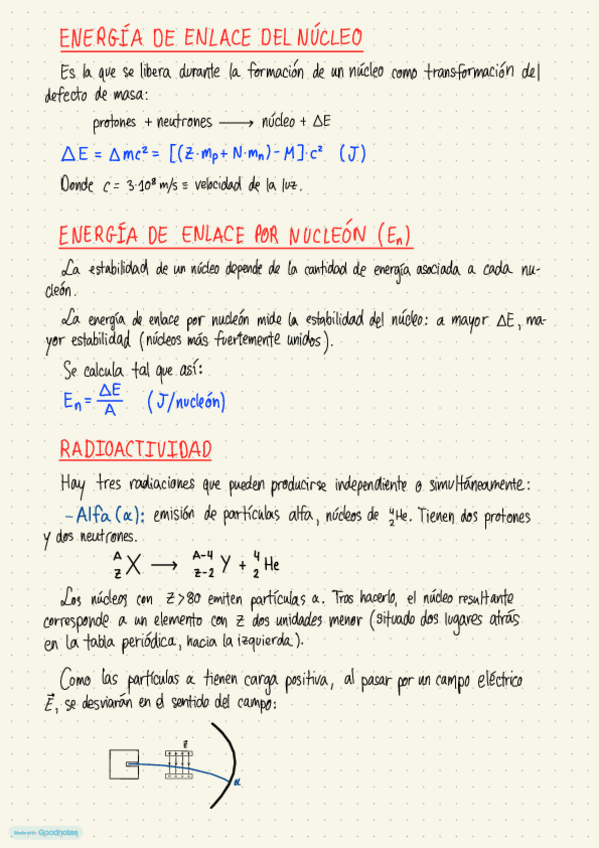 ENERGÍA DE ENLACE DEL NÚCLEO
Es la que se libera durante la formación de un núcleo como transformación del
defecto de masa:
protones + neutrones ⟶ núcleo + ΔE
ΔE = Δmc² = [(Z·mp + N·mn) - M]·c² (J)
Donde c = 3·10⁸ m/s ≡ velocidad de la luz.
ENERGÍA DE ENLACE POR NUCLEÓN (En)
La estabilidad de un núcleo depende de la cantidad de energía asociada a cada nu-
cleón.
La energía de enlace por nucleón mide la estabilidad del núcleo: a mayor ΔE, ma-
yor estabilidad (núcleos más fuertemente unidos).
Se calcula tal que así:
En = ΔE/A (J/nucleón)
RADIACTIVIDAD
Hay tres radiaciones que pueden producirse independiente o simultáneamente:
- Alfa (α): emisión de partículas alfa, núcleos de ⁴₂He. Tienen dos protones
y dos neutrones.
A Z X ⟶ A-4 Z-2 Y + 4 2 He
Los núcleos con Z>80 emiten partículas α. Tras hacerlo, el núcleo resultante
corresponde a un elemento con Z dos unidades menor (situado dos lugares atrás
en la tabla periódica, hacia la izquierda).
Como las partículas α tienen carga positiva, al pasar por un campo eléctrico
E⃗, se desviarán en el sentido del campo:
α
Made with Goodnotes